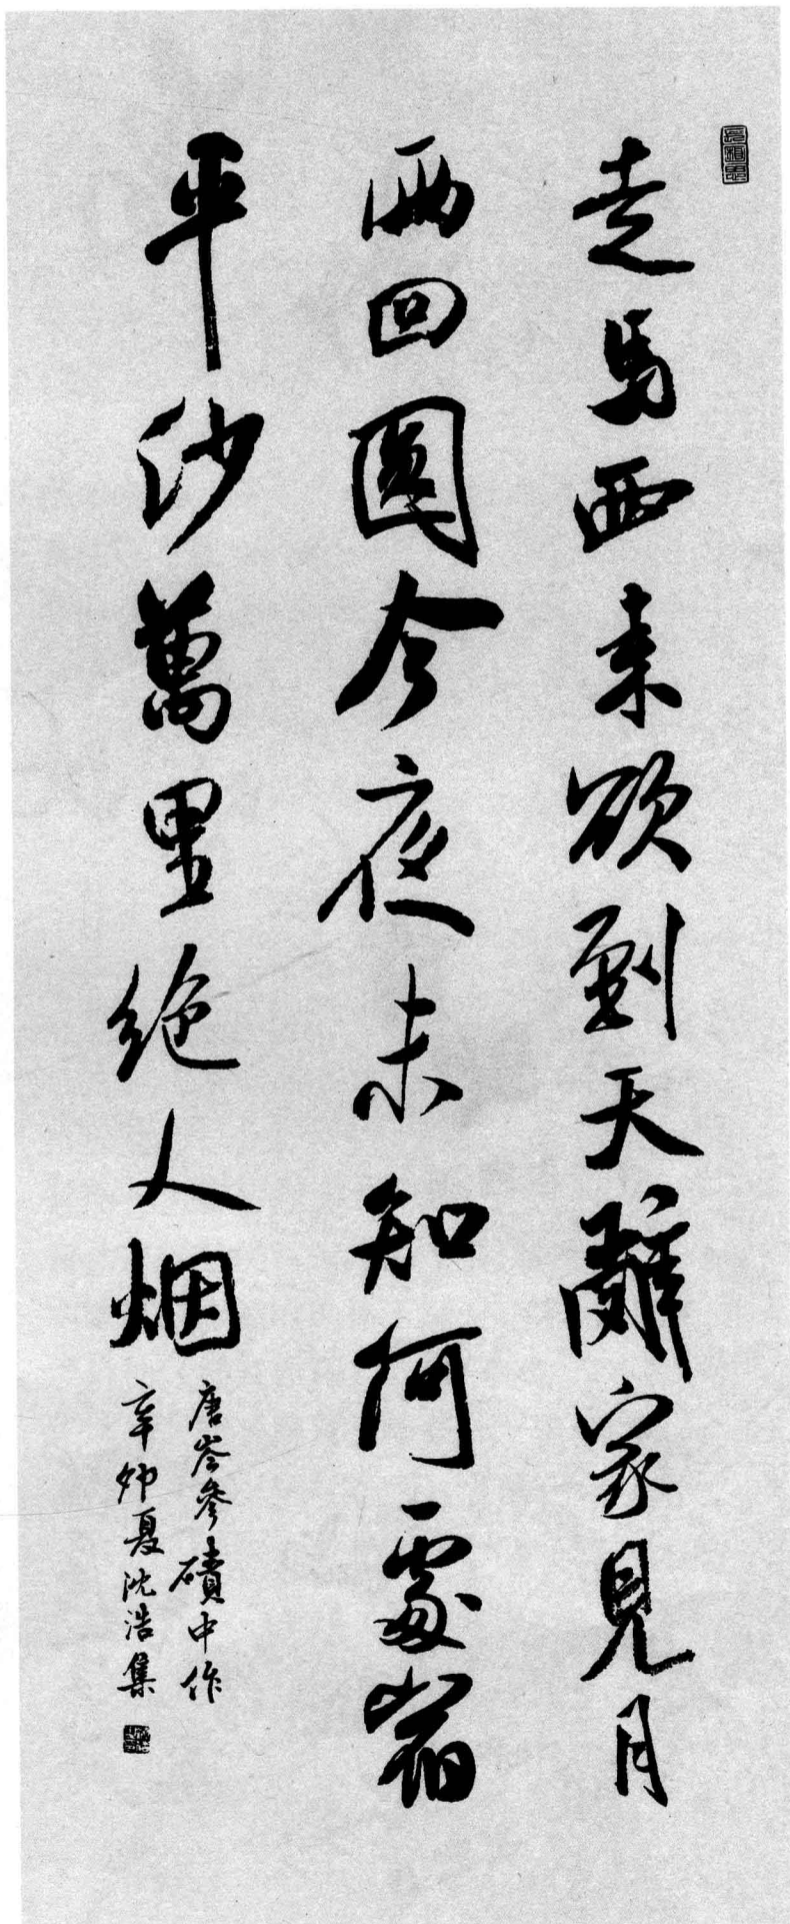 走馬西来欲到天辭家見月
兩回圓今夜未知何處宿
平沙萬里絶人烟
唐岑參磧中作
辛卯夏沈浩集